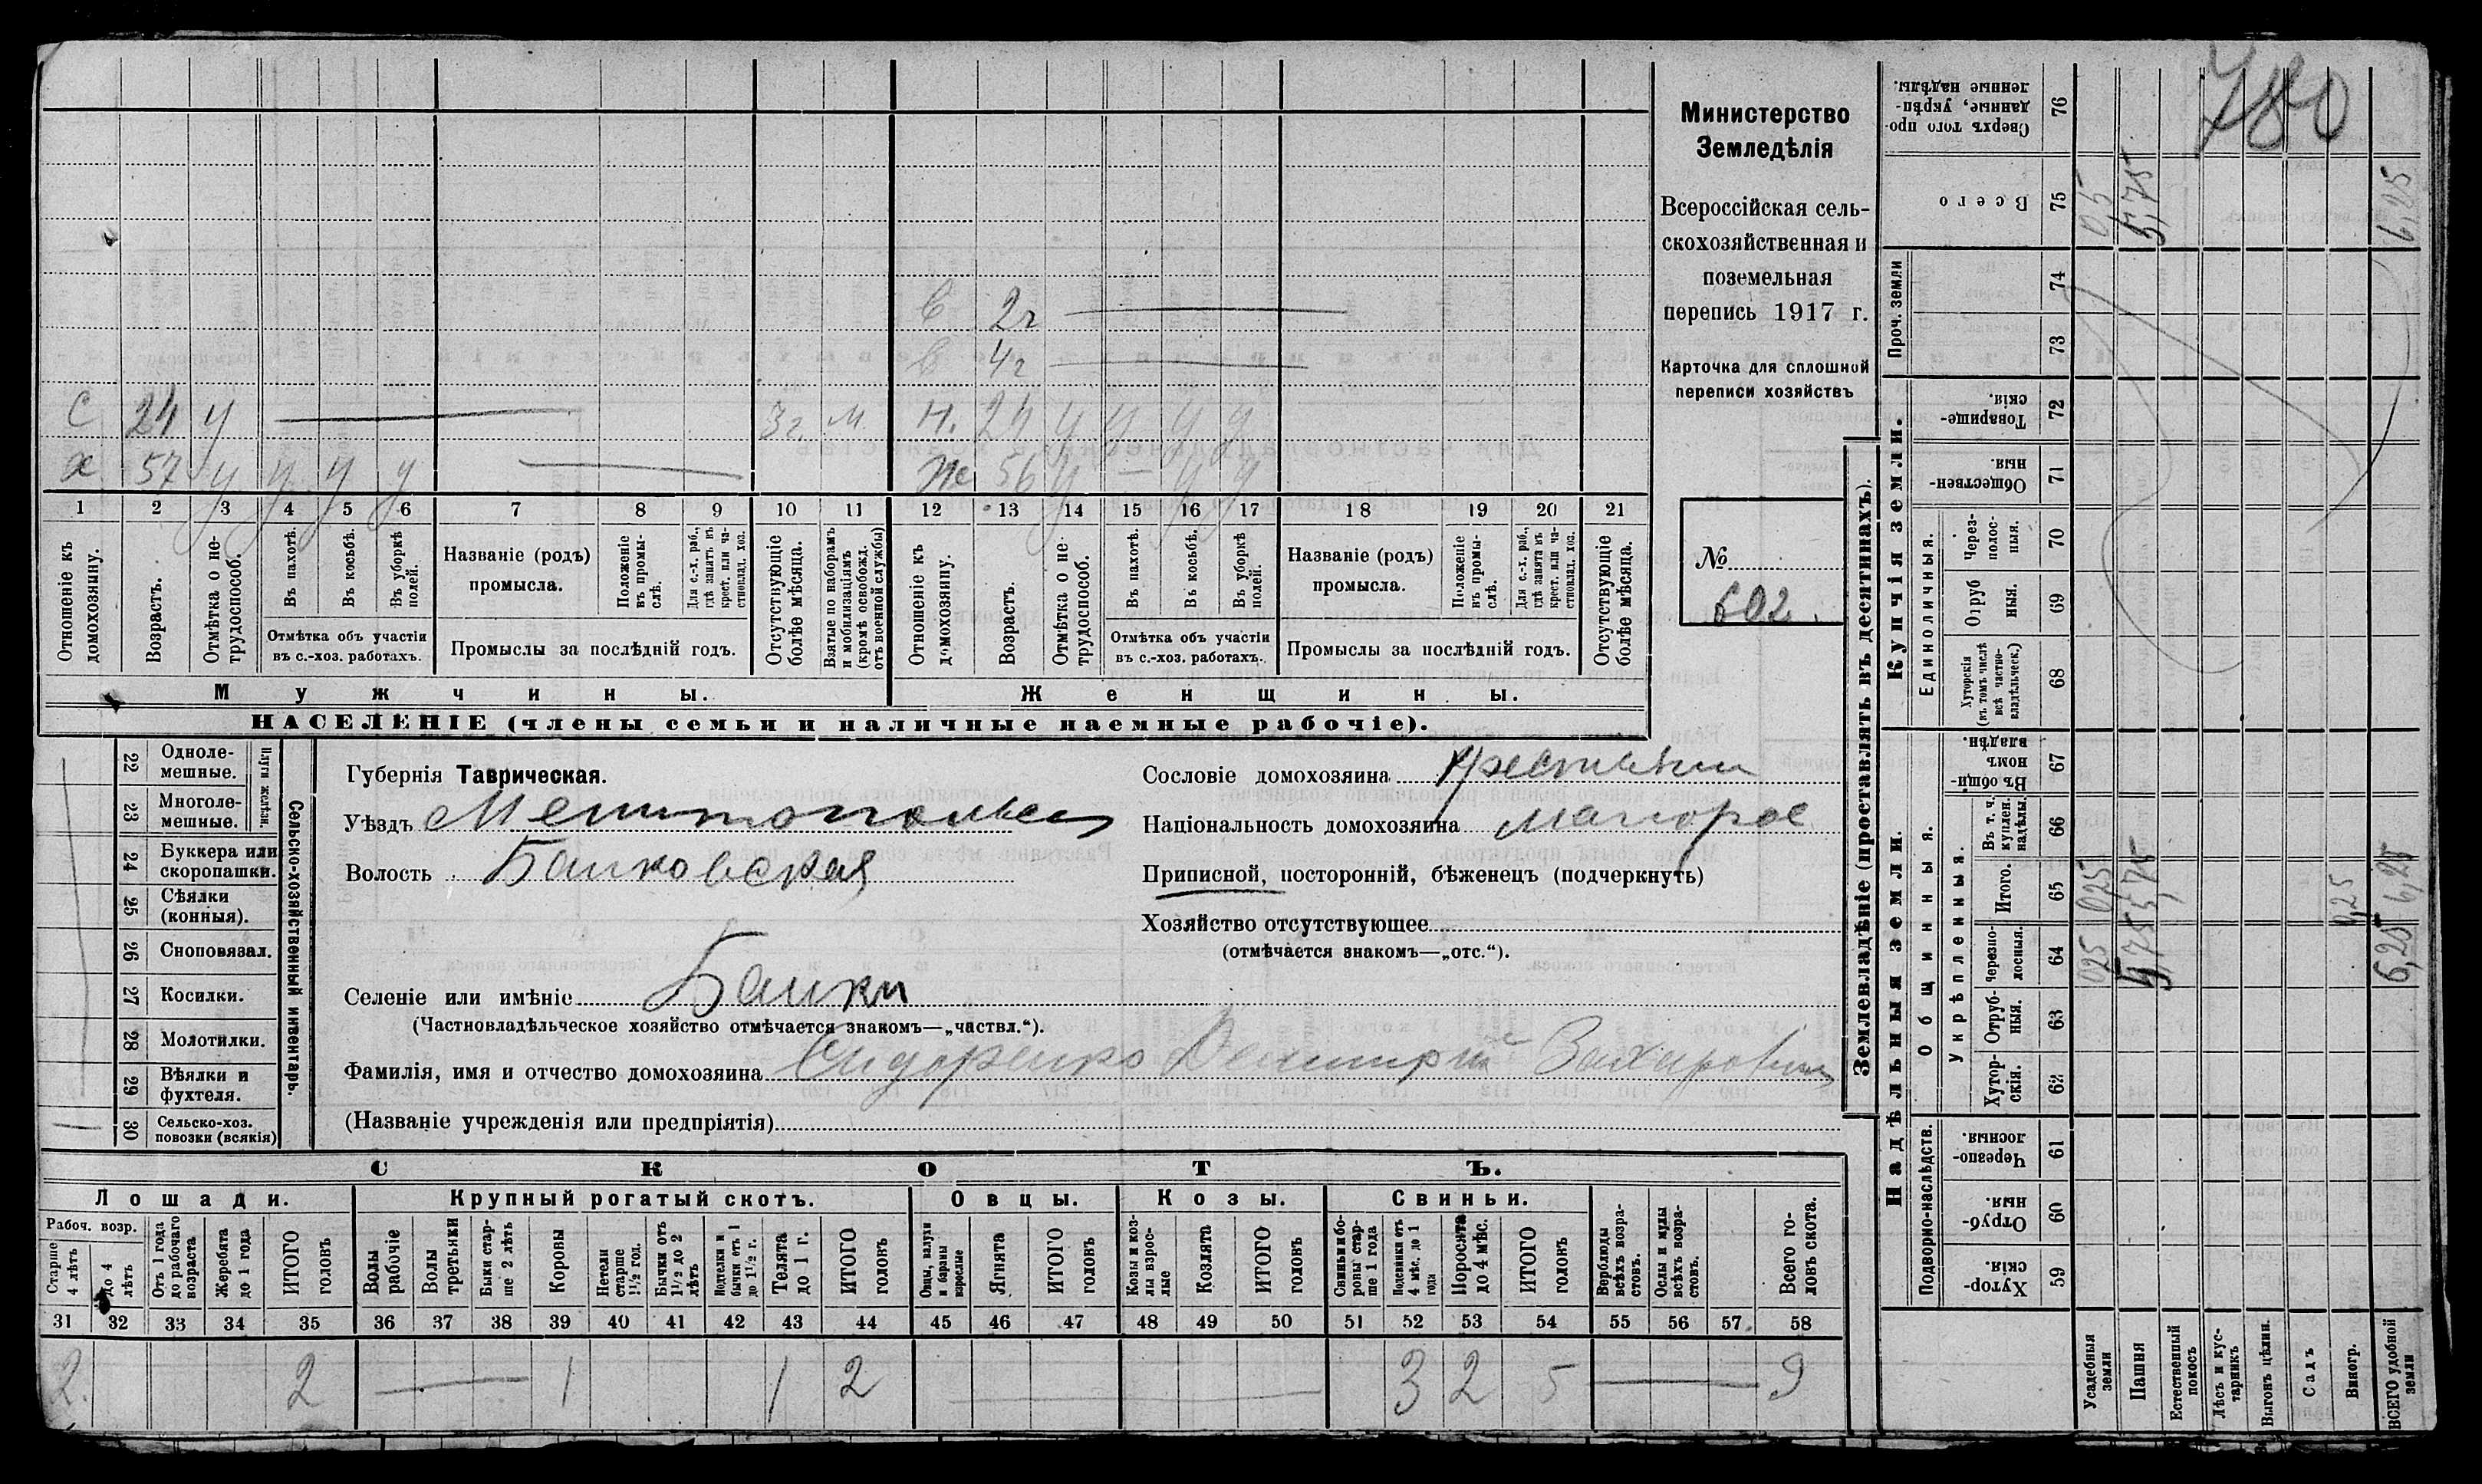 780
Министерство
Земледѣлія
Всероссійская сель-
скохозяйственная и
поземельная
перепись 1917 г.
Карточка для сплошной
переписи хозяйствъ
№
602.
в 2г
в 4г
с 24 у 3г. м. н. 24 у у у у
х 57 у у у у ж 56 у — у у
1 2 3 4 5 6 7 8 9 10 11 12 13 14 15 16 17 18 19 20 21
Отношеніе къ домохозяину.
Возрастъ.
Отмѣтка о не-трудоспособ.
Въ пахотѣ.
Въ косьбѣ.
Въ уборкѣ полей.
Отмѣтка объ участіи
въ с.-хоз. работахъ.
Названіе (родъ)
промысла.
Положеніе въ промы-слѣ.
Для с.-х. раб., гдѣ занятъ въ крест. или ча-стновлад. хоз.
Промыслы за послѣдній годъ.
Отсутствующіе болѣе мѣсяца.
Взятые по наборамъ и мобилизаціямъ (кромѣ освобожд. отъ военной службы)
Отношеніе къ домохозяину.
Возрастъ.
Отмѣтка о не трудоспособ.
Въ пахотѣ.
Въ косьбѣ.
Въ уборкѣ полей.
Отмѣтка объ участіи
въ с.-хоз. работахъ.
Названіе (родъ)
промысла.
Положеніе въ промы-слѣ.
Для с.-х. раб., гдѣ занята въ крест. или ча-стновлад. хоз.
Промыслы за послѣдній годъ.
Отсутствующіе болѣе мѣсяца.
Мужчины.
Женщины.
НАСЕЛЕНІЕ (члены семьи и наличные наемные рабочіе).
22 Одноле-мешные.
23 Многоле-мешные.
Плуги желѣзн.
24 Буккера или скоропашки.
25 Сѣялки (конныя).
26 Сноповязал.
27 Косилки.
28 Молотилки.
29 Вѣялки и фухтеля.
30 Сельско-хоз. повозки (всякія)
Сельско-хозяйственный инвентарь.
Губернія Таврическая.
Уѣздъ Мелитопольск
Волость Балковская
Селеніе или имѣніе Балки
(Частновладѣльческое хозяйство отмѣчается знакомъ—„частвл.“).
Фамилія, имя и отчество домохозяина Сидоренко Димитрій Захарович
(Названіе учрежденія или предпріятія)
Сословіе домохозяина крестьянин
Національность домохозяина малорос
Приписной, посторонній, бѣженецъ (подчеркнуть)
Хозяйство отсутствующее
(отмѣчается знакомъ—„отс.“).
СКОТЪ.
Лошади.
Крупный рогатый скотъ.
Овцы.
Козы.
Свиньи.
Рабоч. возр.
Старше 4 лѣтъ
до 4 лѣтъ
Отъ 1 года до рабочаго возраста
Жеребята до 1 года
ИТОГО головъ
Волы рабочіе
Волы третьяки
Быки стар-ше 2 лѣтъ
Коровы
Нетели старше 1½ год.
Бычки отъ 1½ до 2 лѣтъ
Подтелки и бычки отъ 1 до 1½ г.
Телята до 1 г.
ИТОГО головъ
Овцы, валухи и бараны взрослые
Ягнята
ИТОГО головъ
Козы и коз-лы взрос-лые
Козлята
ИТОГО головъ
Свиньи и бо-ровы стар-ше 1 года
Подсвинки отъ 4 мѣс. до 1 года
Поросята до 4 мѣс.
ИТОГО головъ
Верблюды всѣхъ возра-стовъ.
Ослы и мулы всѣхъ возра-стовъ.
Всего го-ловъ скота.
31 32 33 34 35 36 37 38 39 40 41 42 43 44 45 46 47 48 49 50 51 52 53 54 55 56 57 58
2. 2 1 1 2 3 2 5 9
Землевладѣніе (проставлять въ десятинахъ).
Купчія земли.
Надѣльныя земли.
Сверхъ того про-данные, укрѣп-ленные надѣлы. 76
Всего 75 0,5 5,75 6,25
Проч. земли
74
73
Товарище-скія. 72
Обществен-ныя. 71
Единоличныя.
Через-полос-ныя. 70
Отруб ныя. 69
Хуторскія (въ томъ числѣ всѣ частно-владѣльческ.) 68
Общинныя.
Въ общи-номъ владѣн. 67
Укрѣпленныя.
Въ т. ч. куплен. надѣлы. 66
Итого. 65 0,25 5,75 0,25 6,25
Черезпо-лосныя. 64 0,25 5,75 6,25
Отруб-ныя. 63
Хутор-скія. 62
Подворно-наслѣдств.
Черезпо-лосныя. 61
Отруб-ныя. 60
Хутор-скія. 59
Усадебныя земли
Пашня
Естественный покосъ
Лѣсъ и кус-тарникъ
Выгонъ цѣлин.
Садъ
Виногр.
ВСЕГО удобной земли